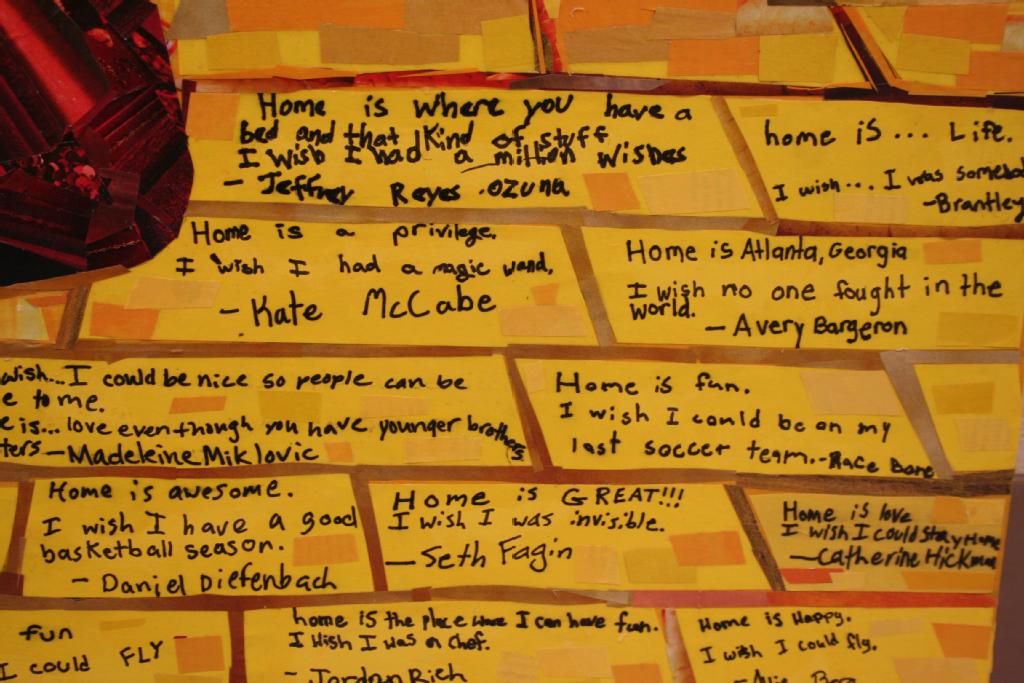 Home is where you have a
bed and that kind of stuff
I wish I had a million wishes
- Jeffrey Reyes Ozuna
home is... Life.
I wish... I was somebod
-Brantley
Home is a privilege.
I wish I had a magic wand.
- Kate McCabe
Home is Atlanta, Georgia
I wish no one fought in the
world.
- Avery Bargeron
wish...I could be nice so people can be
e to me.
e is... love even though you have younger brothers
ters - Madeleine Miklovic
Home is fun.
I wish I could be on my
last soccer team. -
Home is awesome.
I wish I have a good
basketball season.
- Daniel Diefenbach
Home is GREAT!!!
I wish I was invisible.
- Seth Fagin
Home is love
I wish I could stay Home
- Catherine Hickman
fun
I could FLY
home is the place were I can have fun.
I Wish I was a chef.
- Jordan Rich
Home is Happy.
I wish I could fly.